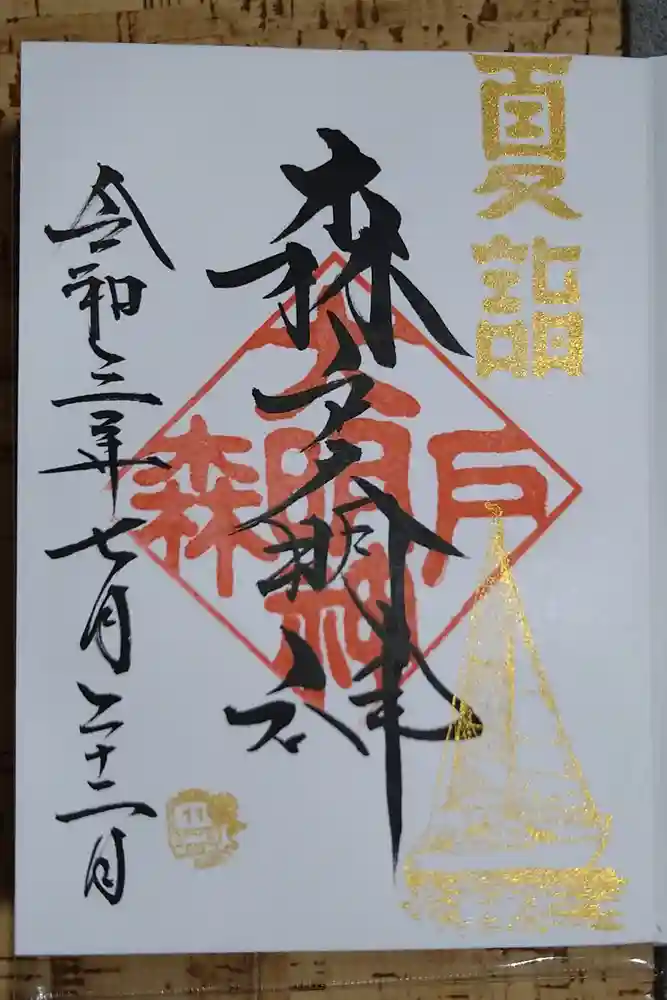 夏詣
森戸大明神
森戸
大明神
令和三年七月二十二日